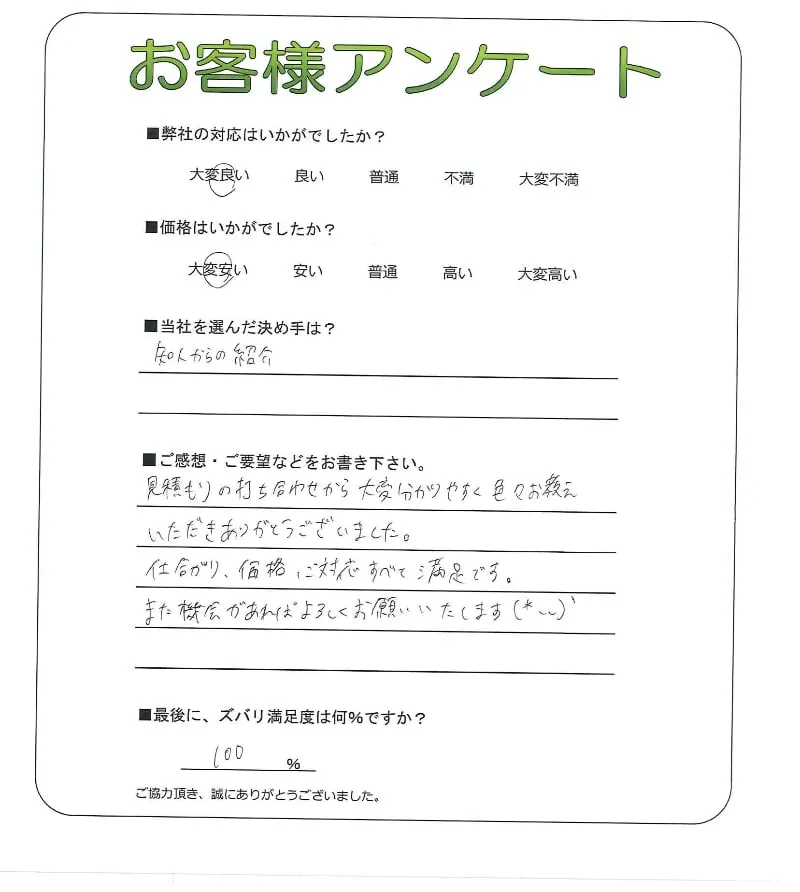 お客様アンケート
■弊社の対応はいかがでしたか？
大変良い 良い 普通 不満 大変不満
■価格はいかがでしたか？
大変安い 安い 普通 高い 大変高い
■当社を選んだ決め手は？
知人からの紹介
■ご感想・ご要望などをお書き下さい。
見積もりの打ち合わせから大変分かりやすく色々お教え
いただきありがとうございました。
仕上がり、価格、ご対応すべて満足です。
また機会があればよろしくお願いいたします(*ᴗᴗ)`
■最後に、ズバリ満足度は何%ですか？
100 %
ご協力頂き、誠にありがとうございました。